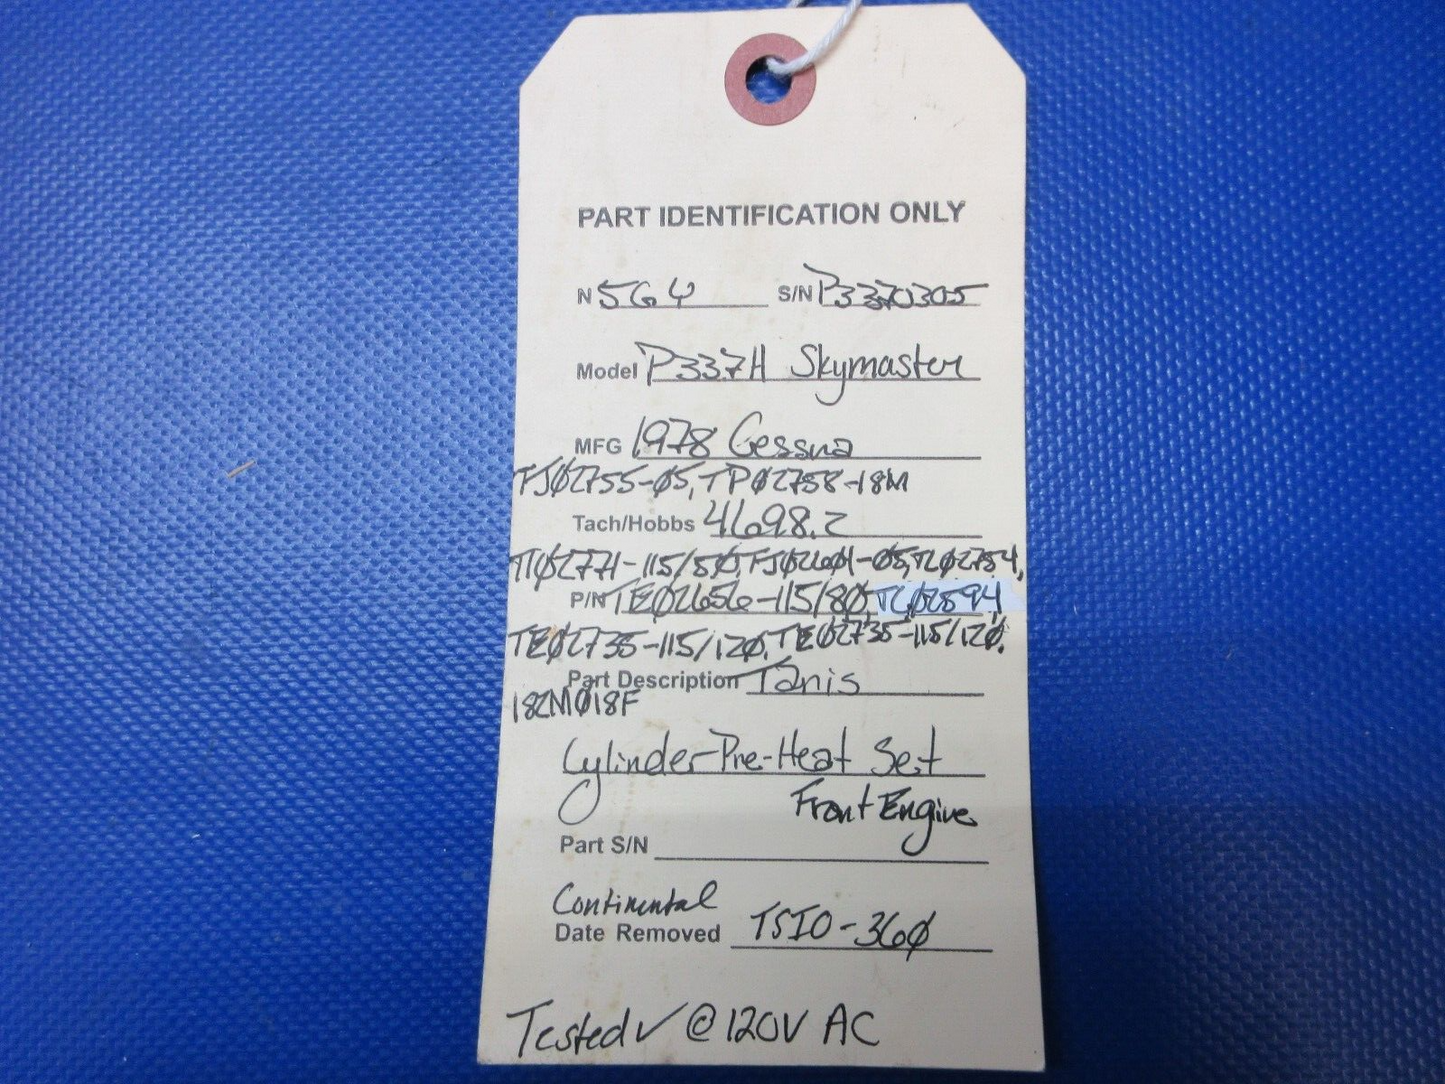 PART IDENTIFICATION ONLY
N 564 S/N P3370305
Model P337H Skymaster
MFG 1978 Cessna
TJØ2755-Ø5, TPØ2758-18M
Tach/Hobbs 4698.2
TIØ2771-115/5Ø, TJØ26Ø1-Ø5, TLØ2754,
P/N TEØ2656-115/8Ø,
TEØ2735-115/12Ø, TEØ2735-115/12Ø,
Part Description Tanis
182MØ18F
Cylinder Pre-Heat Set
Front Engine
Part S/N
Continental
Date Removed TSIO-36Ø
Tested ✓ @ 120V AC